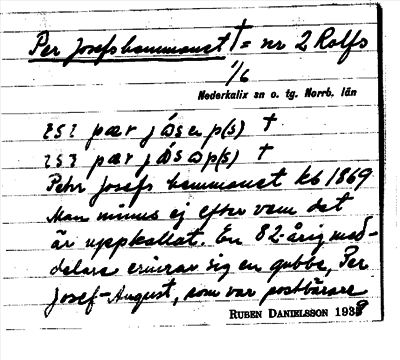 Per Josefshemmanet † = nr 2 Rolfs
1/6
Nederkalix sn o. tg. Norrb. län
pær jósep(s) †
pær jósəp(s) †
Pehr Josefs hemmanet kb 1869
Man minns ej efter vem det
är uppkallat. En 82-årig med-
delare erinrar sig en gubbe, Per
Josef-August, som var postbärare
RUBEN DANIELSSON 1938